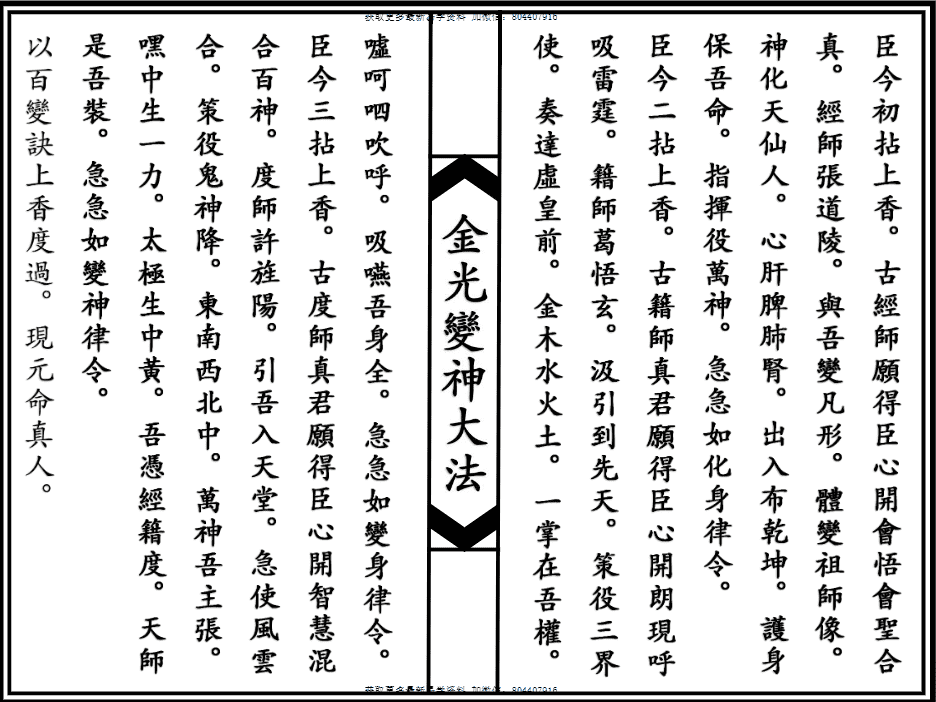 获取更多最新易学资料 加微信：804407916
臣今初拈上香。古經師願得臣心開會悟會聖合
真。經師張道陵。與吾變凡形。體變祖師像。
神化天仙人。心肝脾肺腎。出入布乾坤。護身
保吾命。指揮役萬神。急急如化身律令。
臣今二拈上香。古籍師真君願得臣心開朗現呼
吸雷霆。籍師葛悟玄。汲引到先天。策役三界
使。奏達虛皇前。金木水火土。一掌在吾權。
金光變神大法
噓呵呬吹呼。吸嚥吾身全。急急如變身律令。
臣今三拈上香。古度師真君願得臣心開智慧混
合百神。度師許旌陽。引吾入天堂。急使風雲
合。策役鬼神降。東南西北中。萬神吾主張。
嘿中生一力。太極生中黃。吾憑經籍度。天師
是吾裝。急急如變神律令。
以百變訣上香度過。現元命真人。
获取更多最新易学资料 加微信：804407916